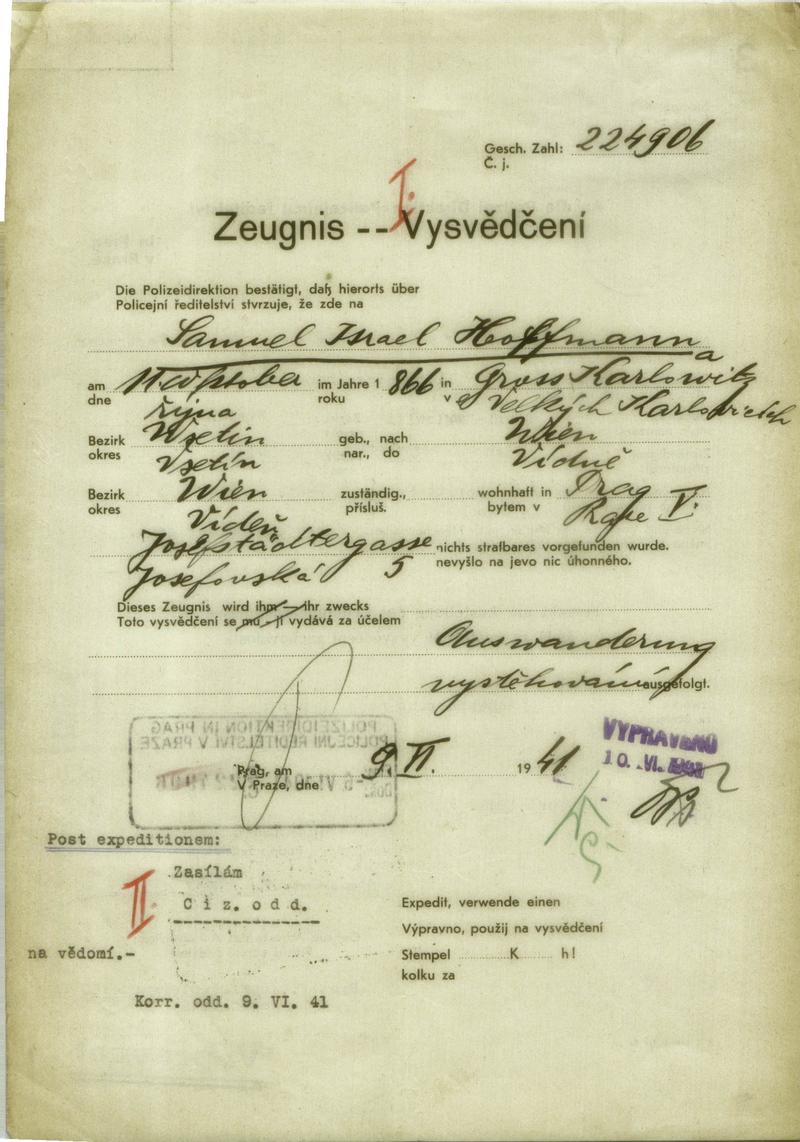 Gesch. Zahl: 224906
Č. j.
I.
Zeugnis -- Vysvědčení
Die Polizeidirektion bestätigt, daß hierorts über
Policejní ředitelství stvrzuje, že zde na
Samuel Israel Hoffmann
a
am 11. Oktober im Jahre 1 866 in Gross Karlowitz
dne října roku v Velkých Karlovicích
Bezirk Wsetin geb., nach Wien
okres Vsetín nar., do Vídně
Bezirk Wien zuständig., wohnhaft in Prag
okres Vídeň přísluš. bytem v Praze V.
Josefstädtergasse nichts strafbares vorgefunden wurde.
Josefovská 5 nevyšlo na jevo nic úhonného.
Dieses Zeugnis wird ihm – ihr zwecks
Toto vysvědčení se mu – jí vydává za účelem
Auswanderung
vystěhování ausgefolgt.
POLIZEIDIREKTION IN PRAG
POLICEJNÍ ŘEDITELSTVÍ V PRAZE
Prag, am 9. VI. 19 41
V Praze, dne
VYPRAVENO
10. VI. 1941
Post expeditionem:
Zasílám
II.
Ciz. odd.
na vědomí.-
Korr. odd. 9. VI. 41
Expedit, verwende einen
Výpravno, použij na vysvědčení
Stempel K h!
kolku za